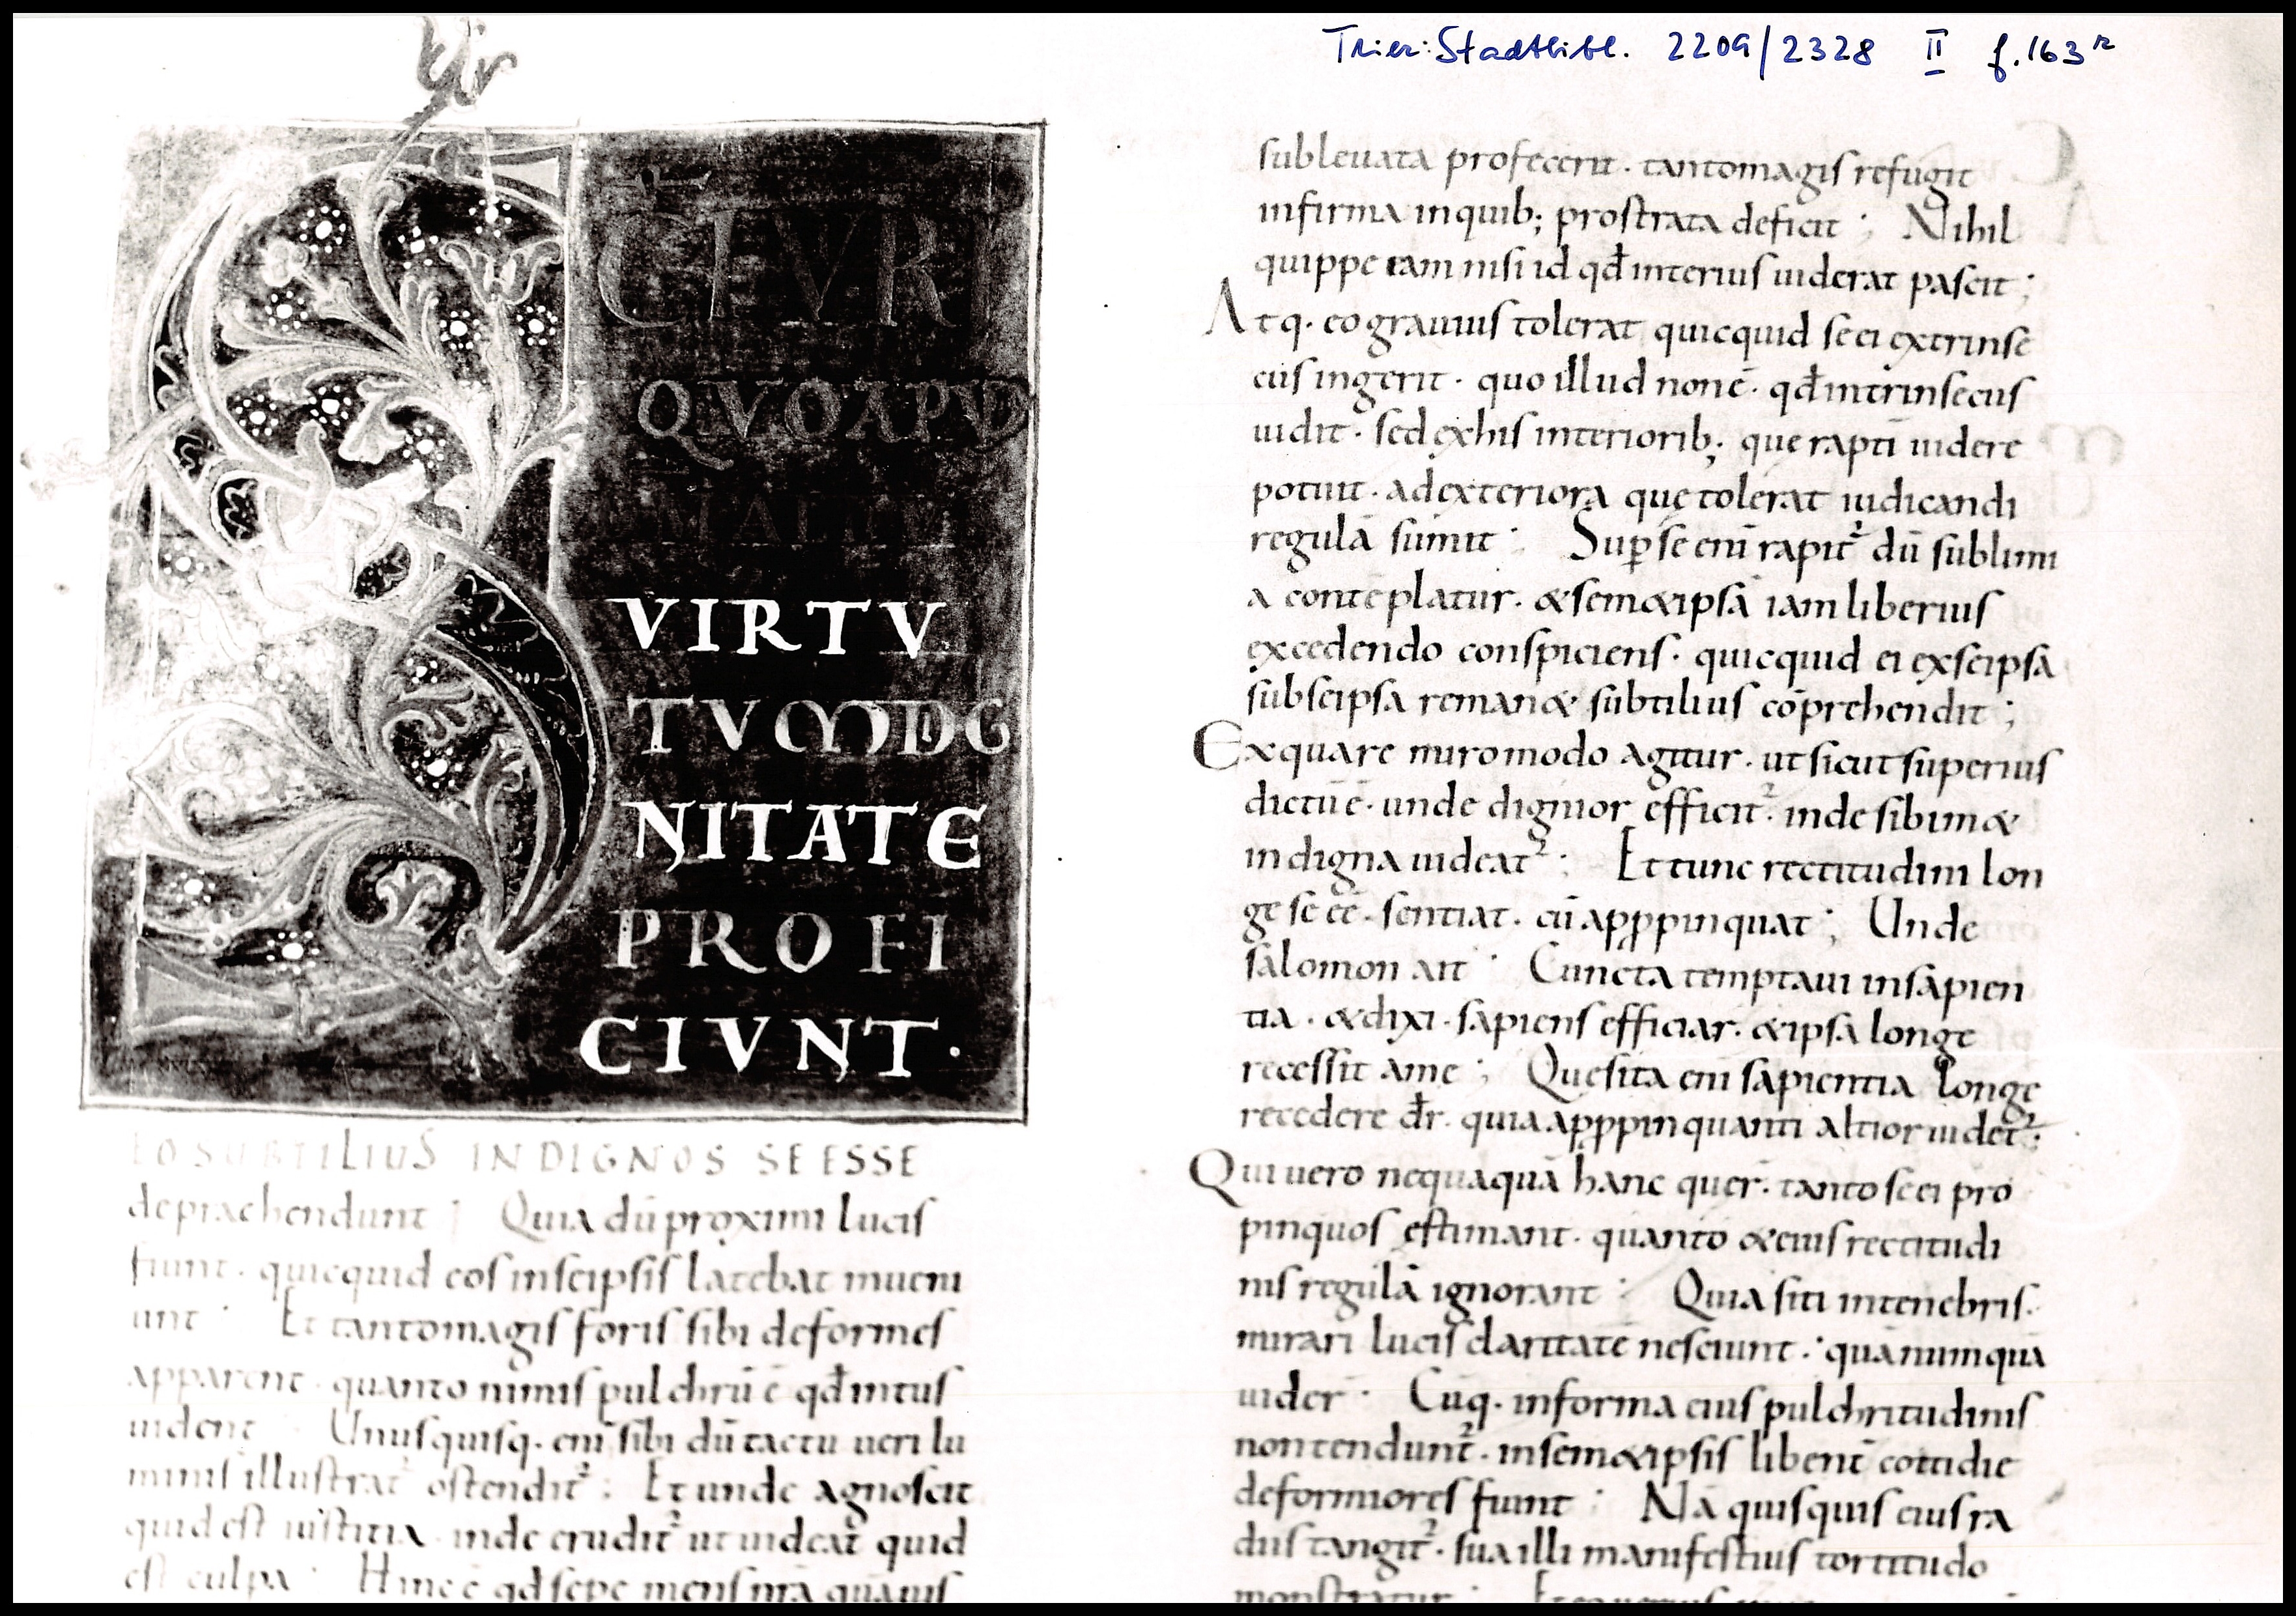 Trier: Stadtbibl. 2209/2328 II f. 163r
S
CTI VIRI
QVO APVD
VIRTV
TVM DIG
NITATE
PROFI
CIVNT.
EO SUBTILIUS INDIGNOS SE ESSE
depraehendunt; Quia dū proximi lucis
fiunt. quicquid eos in seipsis latebat inueni
unt. Et tanto magis foris sibi deformes
apparent. quanto nimis pulchrū ē qđ intus
uident. Unusquisq. eni sibi dū tactu ueri lu
minis illustrat᷑ ostendit᷑; Et unde agnoscit
quid est iustitia. inde erudit᷑ ut uideat quid
est culpa. Hinc ē qđ sepe mens nr̄a quāuis
subleuata profecerit. tanto magis refugit
infirma in quib; prostrata deficit; Nihil
quippe eam nisi id qđ interius uiderat pascit;
Atq. eo grauius tolerat quicquid se ei extrinse
cus ingerit. quo illud non ē. qđ intrinsecus
uidit. sed ex his interiorib; que rapti uidere
potuit. ad exteriora quę tolerat iudicandi
regulā sumit; Suꝑ se eni rapit᷑ dū sublimi
a contēplatur. & semetipsā iam liberius
excedendo conspiciens. quicquid ei ex seipsa
sub seipsa remanet subtilius cōprehendit;
Ex qua re miro modo agitur. ut sicut superius
dictū ē. unde dignior efficit᷑. inde sibimet
indigna uideat᷑; Et tunc rectitudini lon
ge se eē. sentiat. cū appropinquat; Unde
salomon ait. Cuncta temptaui in sapien
tia. & dixi. sapiens efficiar. & ipsa longe
recessit a me; Quesita eni sapientia longe
recedere dr̄. quia appropinquanti altior uidet᷑;
Qui uero nequaquā hanc quer. tanto se ei pro
pinquos estimant. quanto & eius rectitudi
nis regulā ignorant; Quia siti in tenebris.
mirari lucis claritatē nesciunt. quā numquā
uider; Cūq. in forma eius pulchritudinis
non tendunt᷑. in semetipsis libent̄ cottidie
deformiores fiunt; Nā quisquis eius ra
diis tangit᷑. sua illi manifestius tortitudo
monstratur;